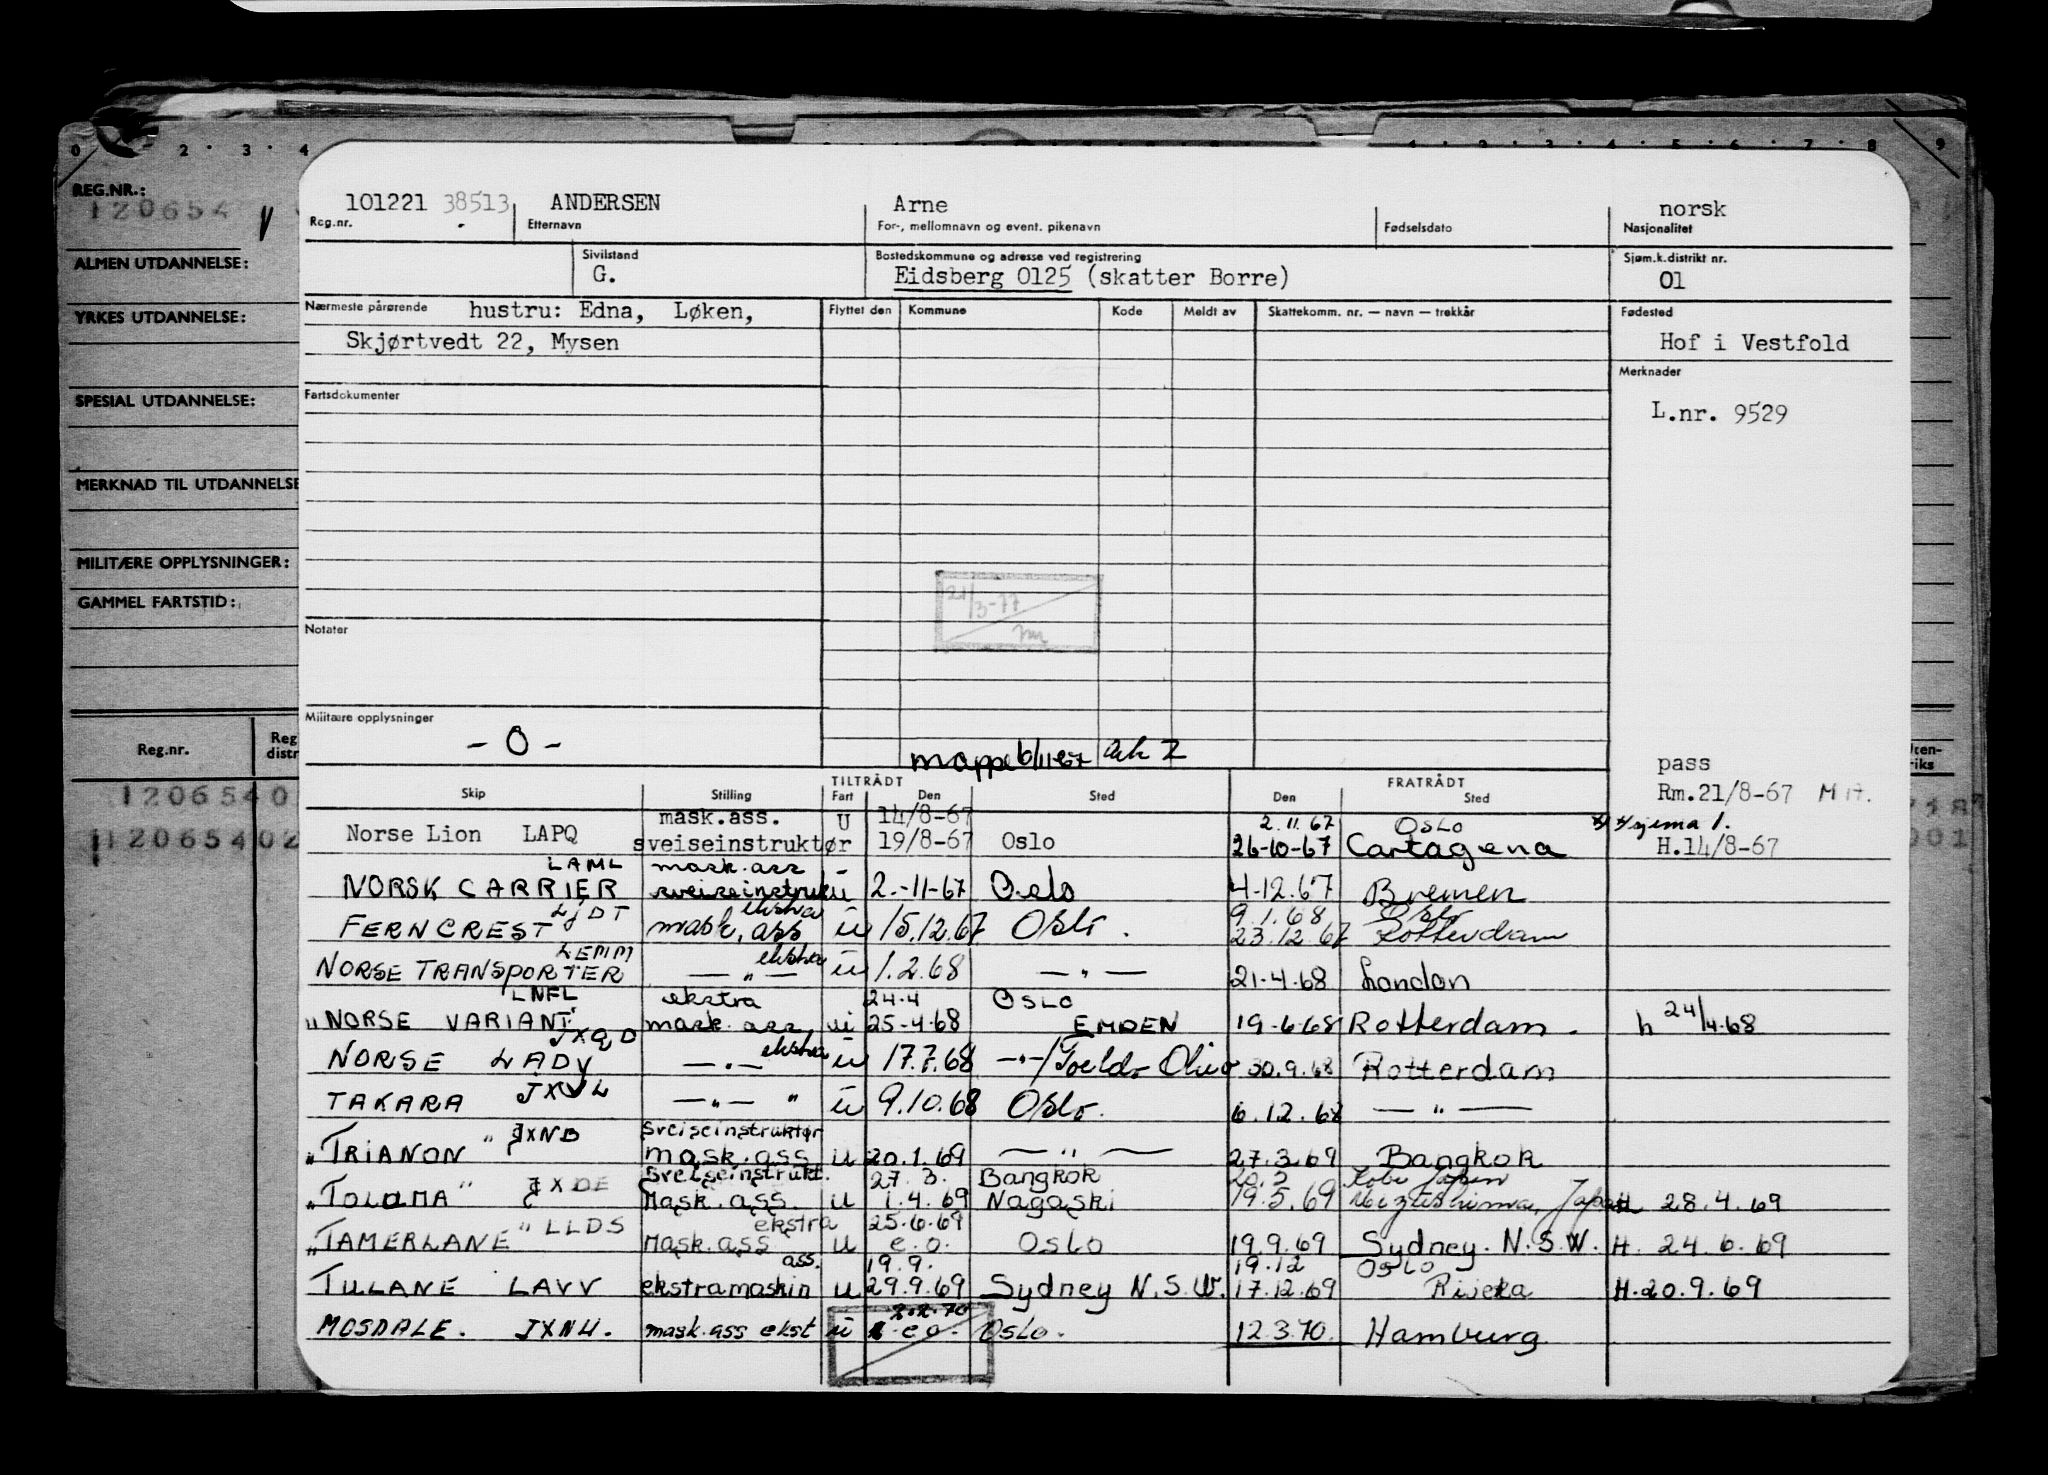 0 2 · 3 · 4 1 · 2 · 3 · 4 · 5 · 6 · 7 · 8 9
REG.NR.:
120654
ALMEN UTDANNELSE:
YRKES UTDANNELSE:
SPESIAL UTDANNELSE:
MERKNAD TIL UTDANNELSE
MILITÆRE OPPLYSNINGER:
GAMMEL FARTSTID:
Reg.nr. Reg distr
1206540
12065402
101221 38513 ANDERSEN Arne norsk
Reg.nr. Etternavn For-, mellomnavn og event. pikenavn Fødselsdato Nasjonalitet
Sivilstand Bostedskommune og adresse ved registrering Sjøm.k.distrikt nr.
G. Eidsberg 0125 (skatter Borre) 01
Nærmeste pårørende hustru: Edna, Løken, Flyttet den Kommune Kode Meldt av Skattekomm. nr. — navn — trekkår Fødested
Skjørtvedt 22, Mysen Hof i Vestfold
Merknader
Fartsdokumenter
L.nr. 9529
21/3-77
Notater
Militære opplysninger
- 0 - mappe 6/11-67
pass
TILTRÅDT FRATRÅDT
Skip Stilling Fart Den Sted Den Sted Rm.21/8-67
mask.ass. U 14/8-67 2.11.67 OSLO
Norse Lion LAPQ sveiseinstruktør 19/8-67 Oslo 26-10-67 Cartagena H.14/8-67
LAML mask.ass -
NORSK CARRIER sveiseinstruk u 2.-11-67 Oslo 4-12.67 Bremen
LJDT ekstra 9.1.68 Oslo
FERNCREST mask. ass u 15.12.67 Oslo. 23.12.67 Rotterdam
LEMM ekstra
NORSE TRANSPORTER — " — u 1.2.68 — " — 21.4.68 London
LNFL ekstra 24.4 OSLO
"NORSE VARIANT" mask. ass, u 25-4-68 EMDEN 19-6-68 Rotterdam. h 24/4-68
JXQD ekstra
NORSE LADY — " — u 17.7.68 — " —/ Toledo Ohio 30.9.68 Rotterdam
TAKARA JXJL — " — " u 9.10.68 Oslo. 6.12.68 — " —
Sveiseinstruktør
"TRIANON" JXNB mask.ass u 20.1.69 — " — 27.3.69 Bangkok
Sveiseinstrukt. 27.3. Bangkok 20.5 Kobe Japan
"TOLOMA" JXDE Mask.ass. u 1.4.69 Nagaski 19.5.69 Mizushima, Japan H 28.4.69
ekstra 25.6.69
"TAMERLANE" LLDS Mask.ass u e.o. Oslo 19.9.69 Sydney. N.S.W. H. 24.6.69
ass. 19.9. 19.12 OSLO
TULANE LAVV ekstramaskin u 29.9.69 Sydney N.S.W. 17.12.69 Rijeka H.20.9.69
2.2.70
MOSDALE. JXNU. mask.ass ekst u e.o. Oslo. 12.3.70. Hamburg